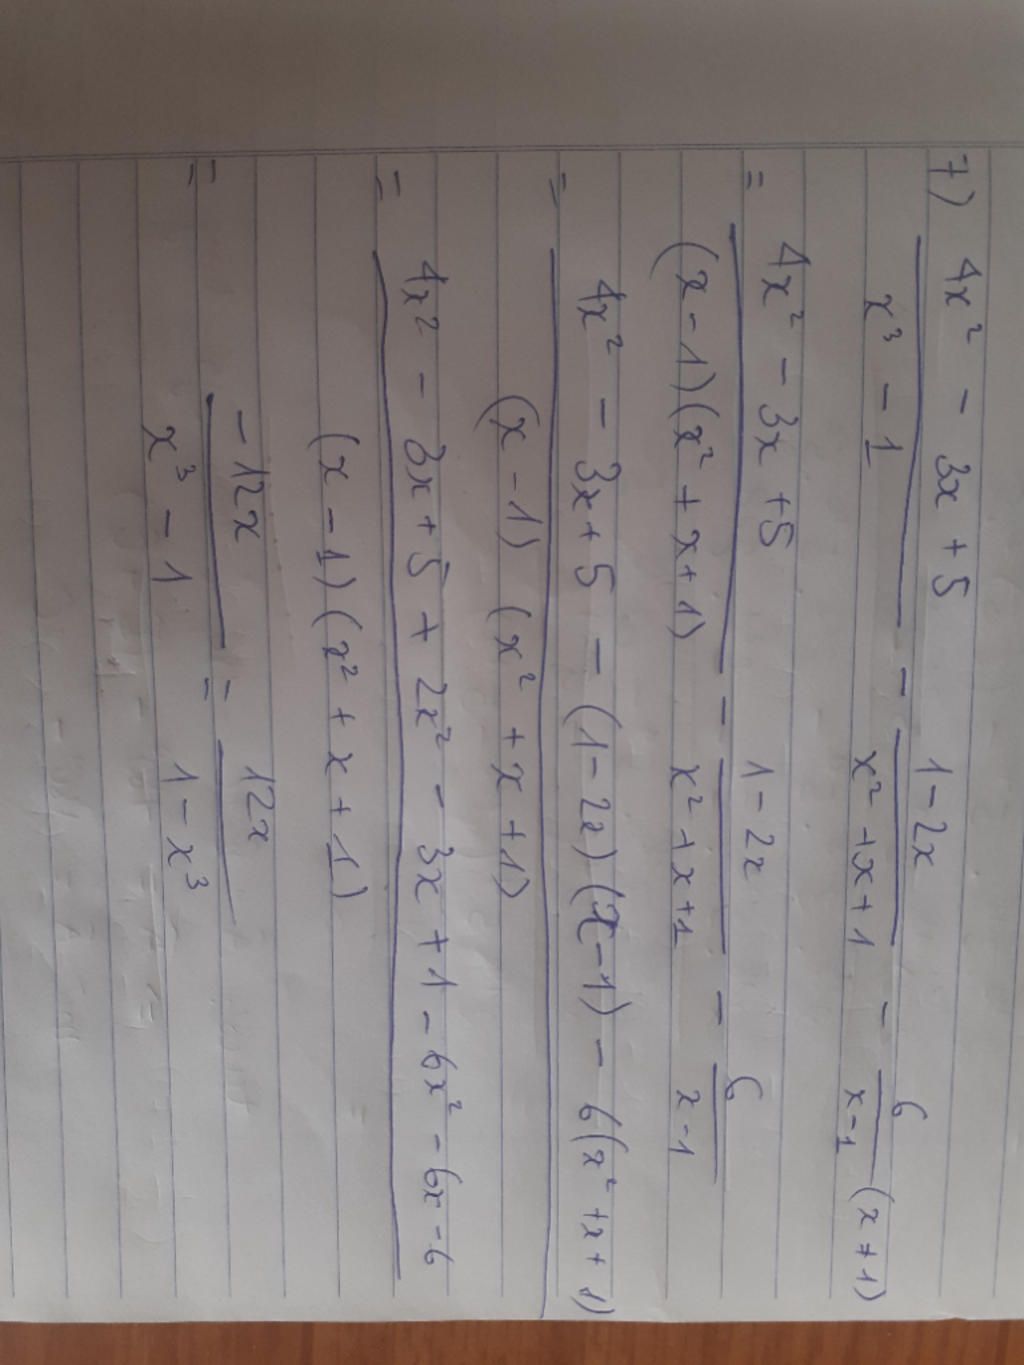 7) (4x² - 3x + 5)/(x³ - 1) - (1 - 2x)/(x² + x + 1) - 6/(x - 1) (x ≠ 1)
= (4x² - 3x + 5)/((x - 1)(x² + x + 1)) - (1 - 2x)/(x² + x + 1) - 6/(x - 1)
= (4x² - 3x + 5 - (1 - 2x)(x - 1) - 6(x² + x + 1))/((x - 1)(x² + x + 1))
= (4x² - 3x + 5 + 2x² - 3x + 1 - 6x² - 6x - 6)/((x - 1)(x² + x + 1))
= (-12x)/(x³ - 1) = 12x/(1 - x³)